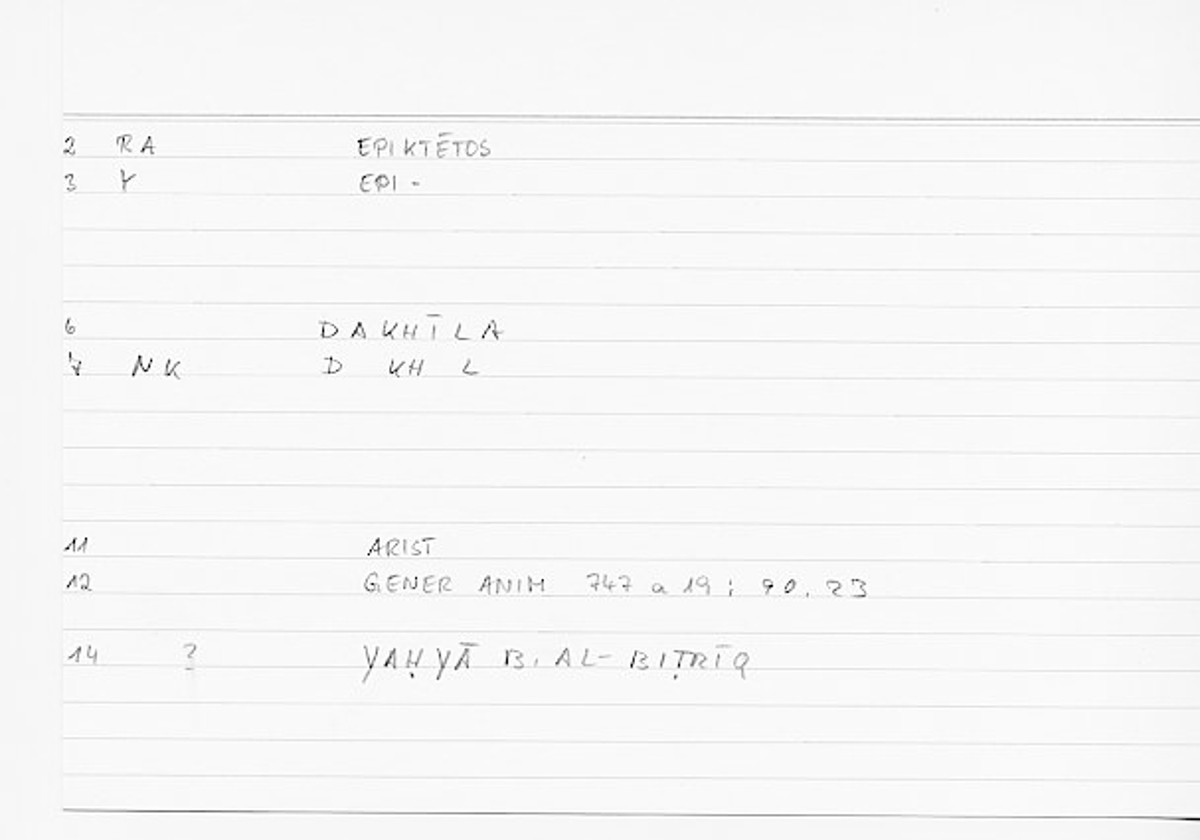 2 RA EPIKTĒTOS
3 Y EPI -
6 DAKHĪLA
7 NK D KH L
11 ARIST
12 GENER ANIM 747 a 19 ; 90.23
14 ? YAḤYĀ B. AL-BIṬRĪQ